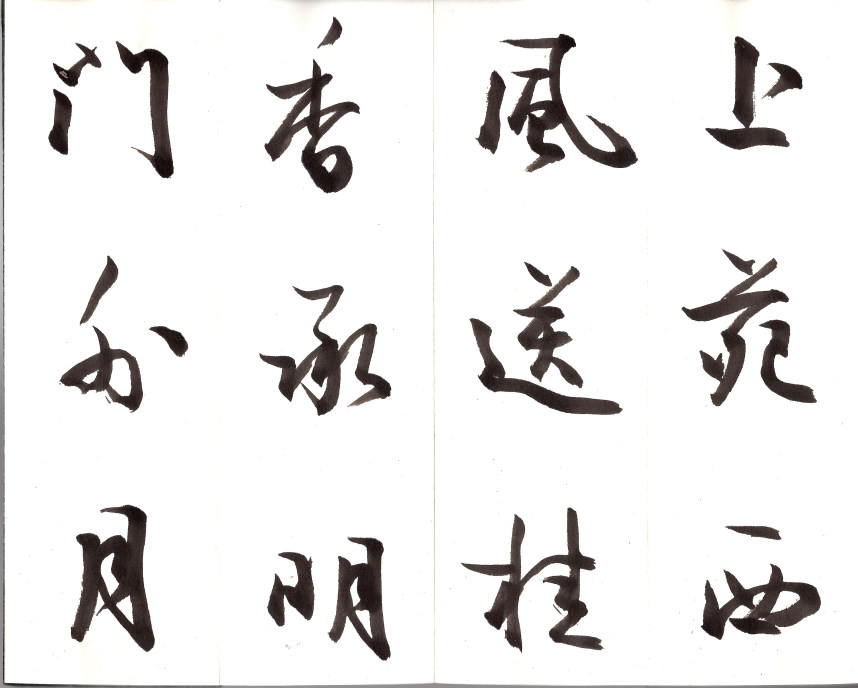 上苑西
風送桂
香承明
門外月